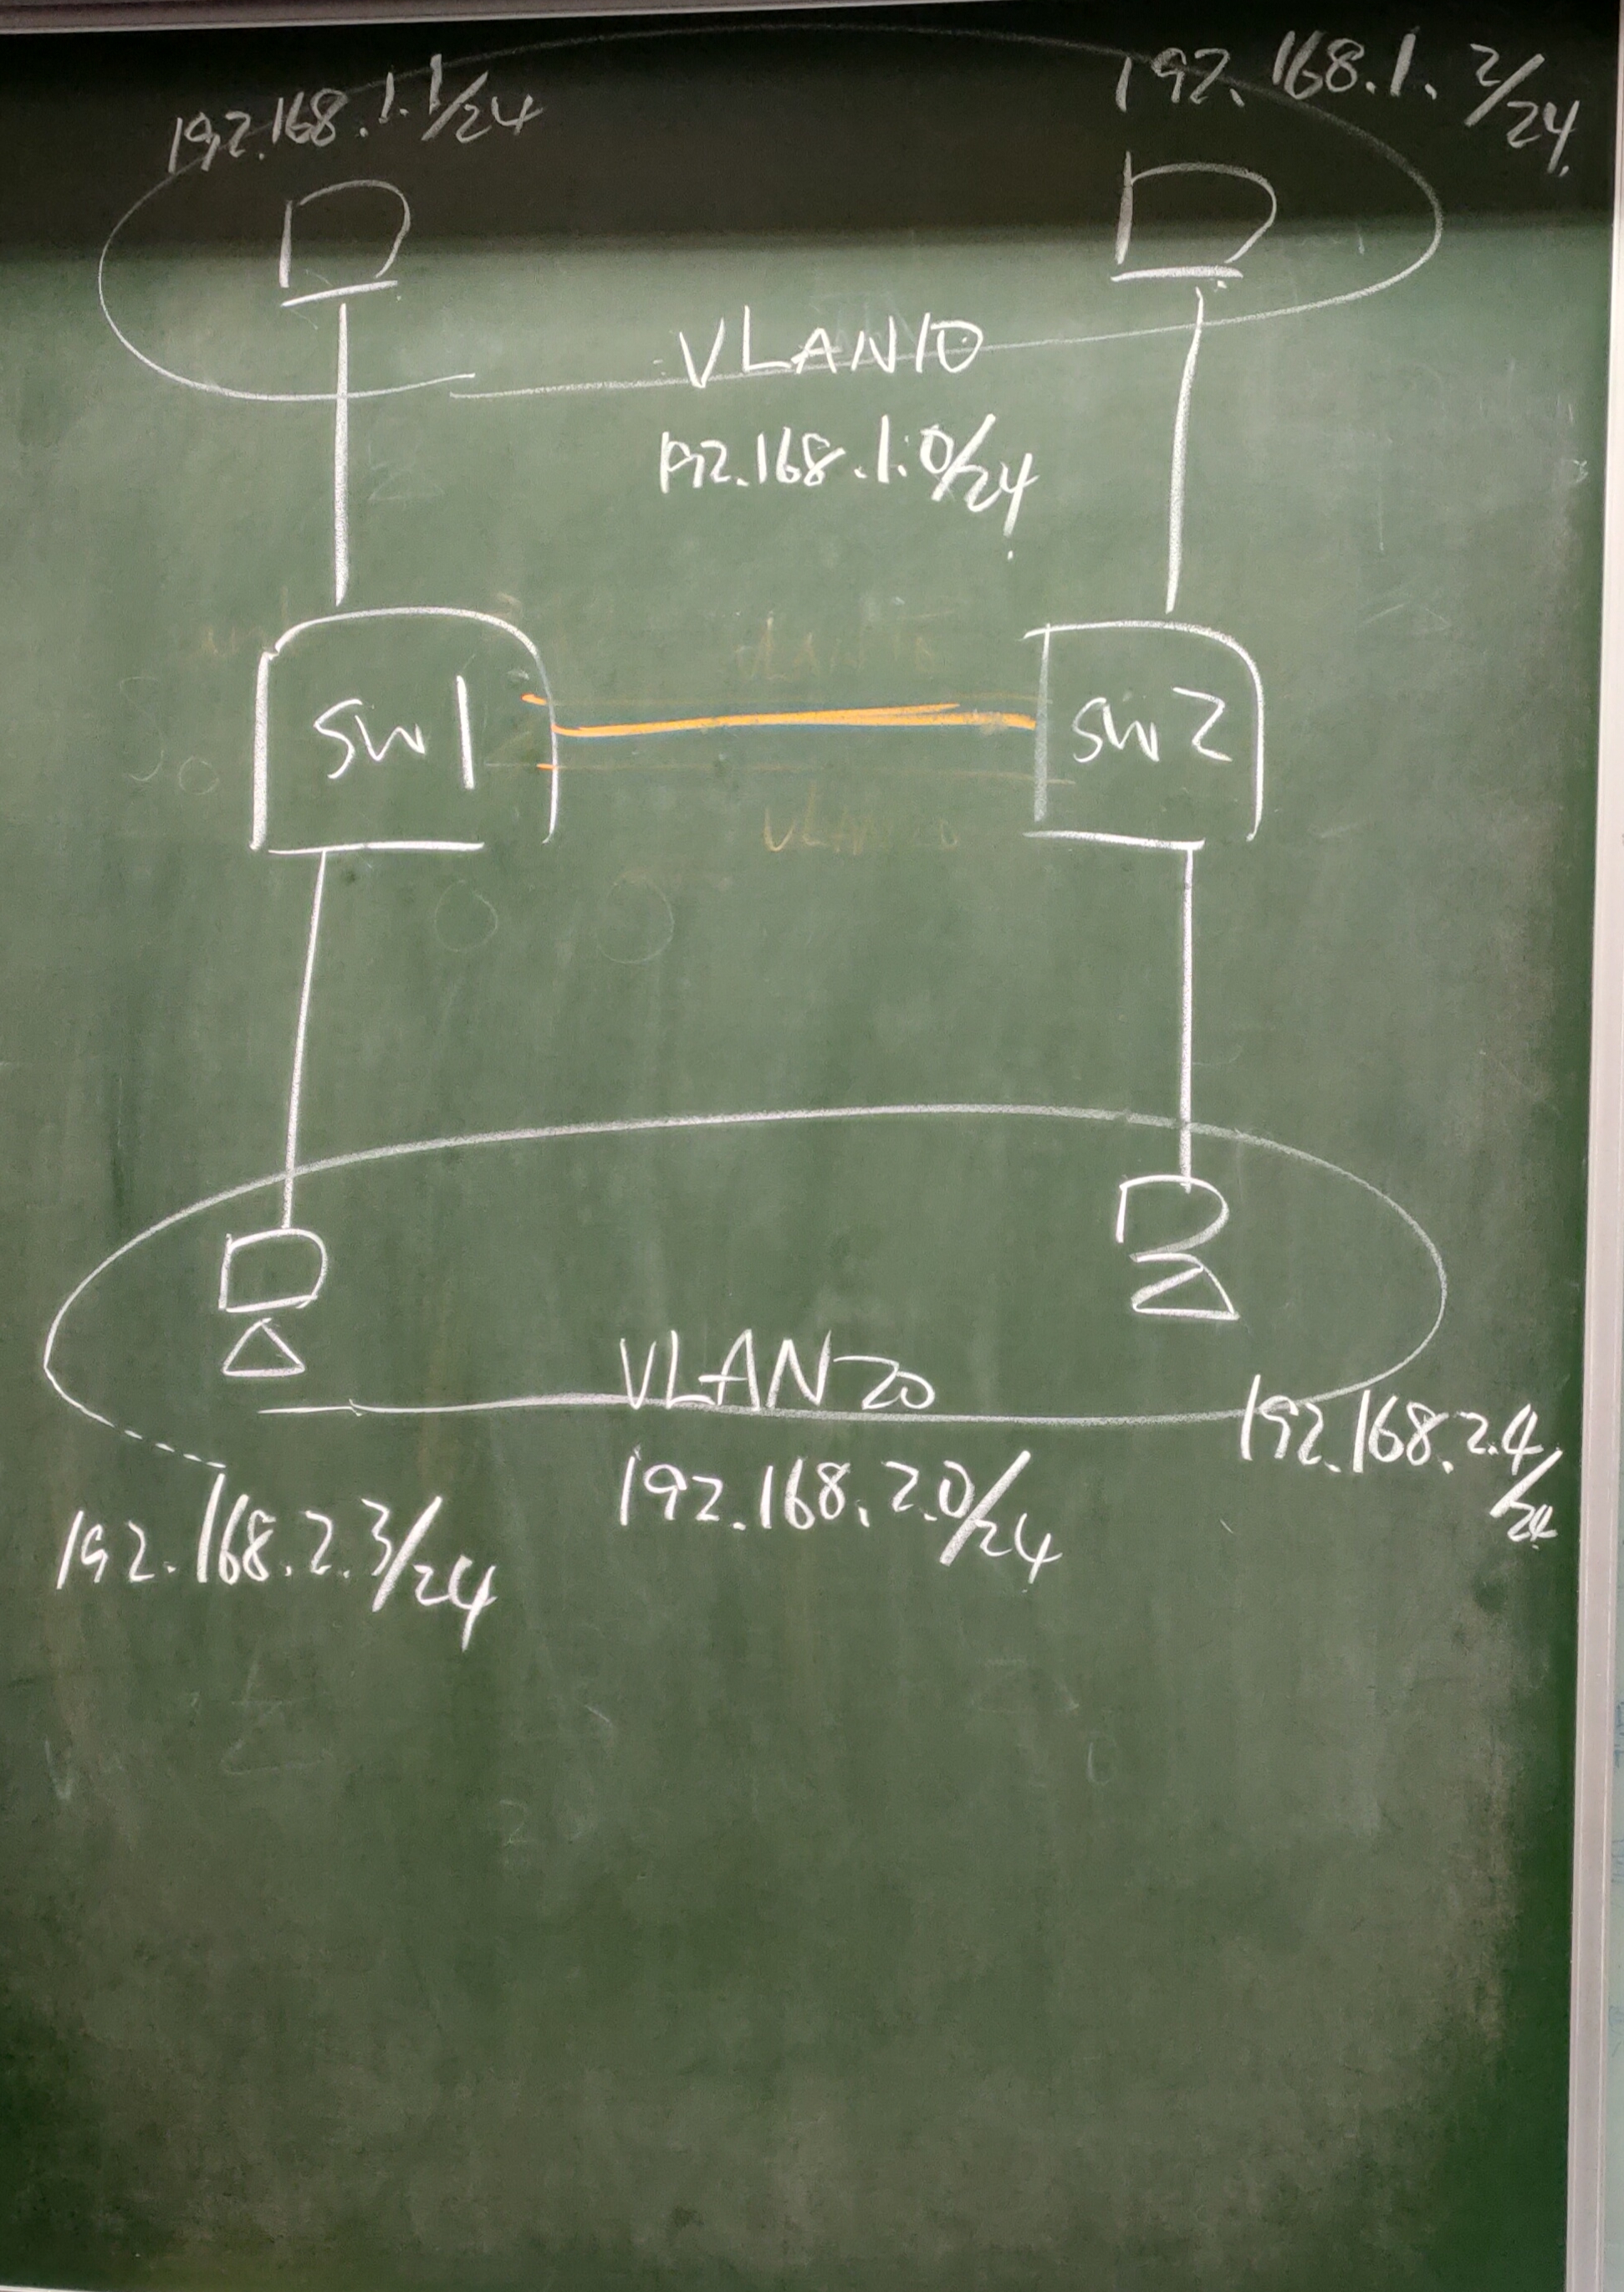 192.168.1.1/24
192.168.1.2/24
VLAN10
192.168.1.0/24
VLAN10
SW1
SW2
VLAN20
VLAN20
192.168.2.4/24
192.168.2.0/24
192.168.2.3/24